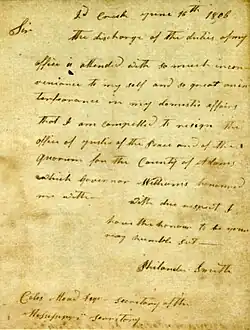 Creek June 16th 1806
Sir
The discharge of the duties of my
office is attended with so much incon
veniance to my self and so great an in
tarfearance in my domestic affairs
that I am compelled to resign the
office of justice of the Peace and of the
Quorum for the County of Adams
which Governor Williams honoured
me with
with due respect I
have the honour to be your
very humble Sert
Philander Smith
Cato Mead Esqr Secretary of the
Mississippi Territory